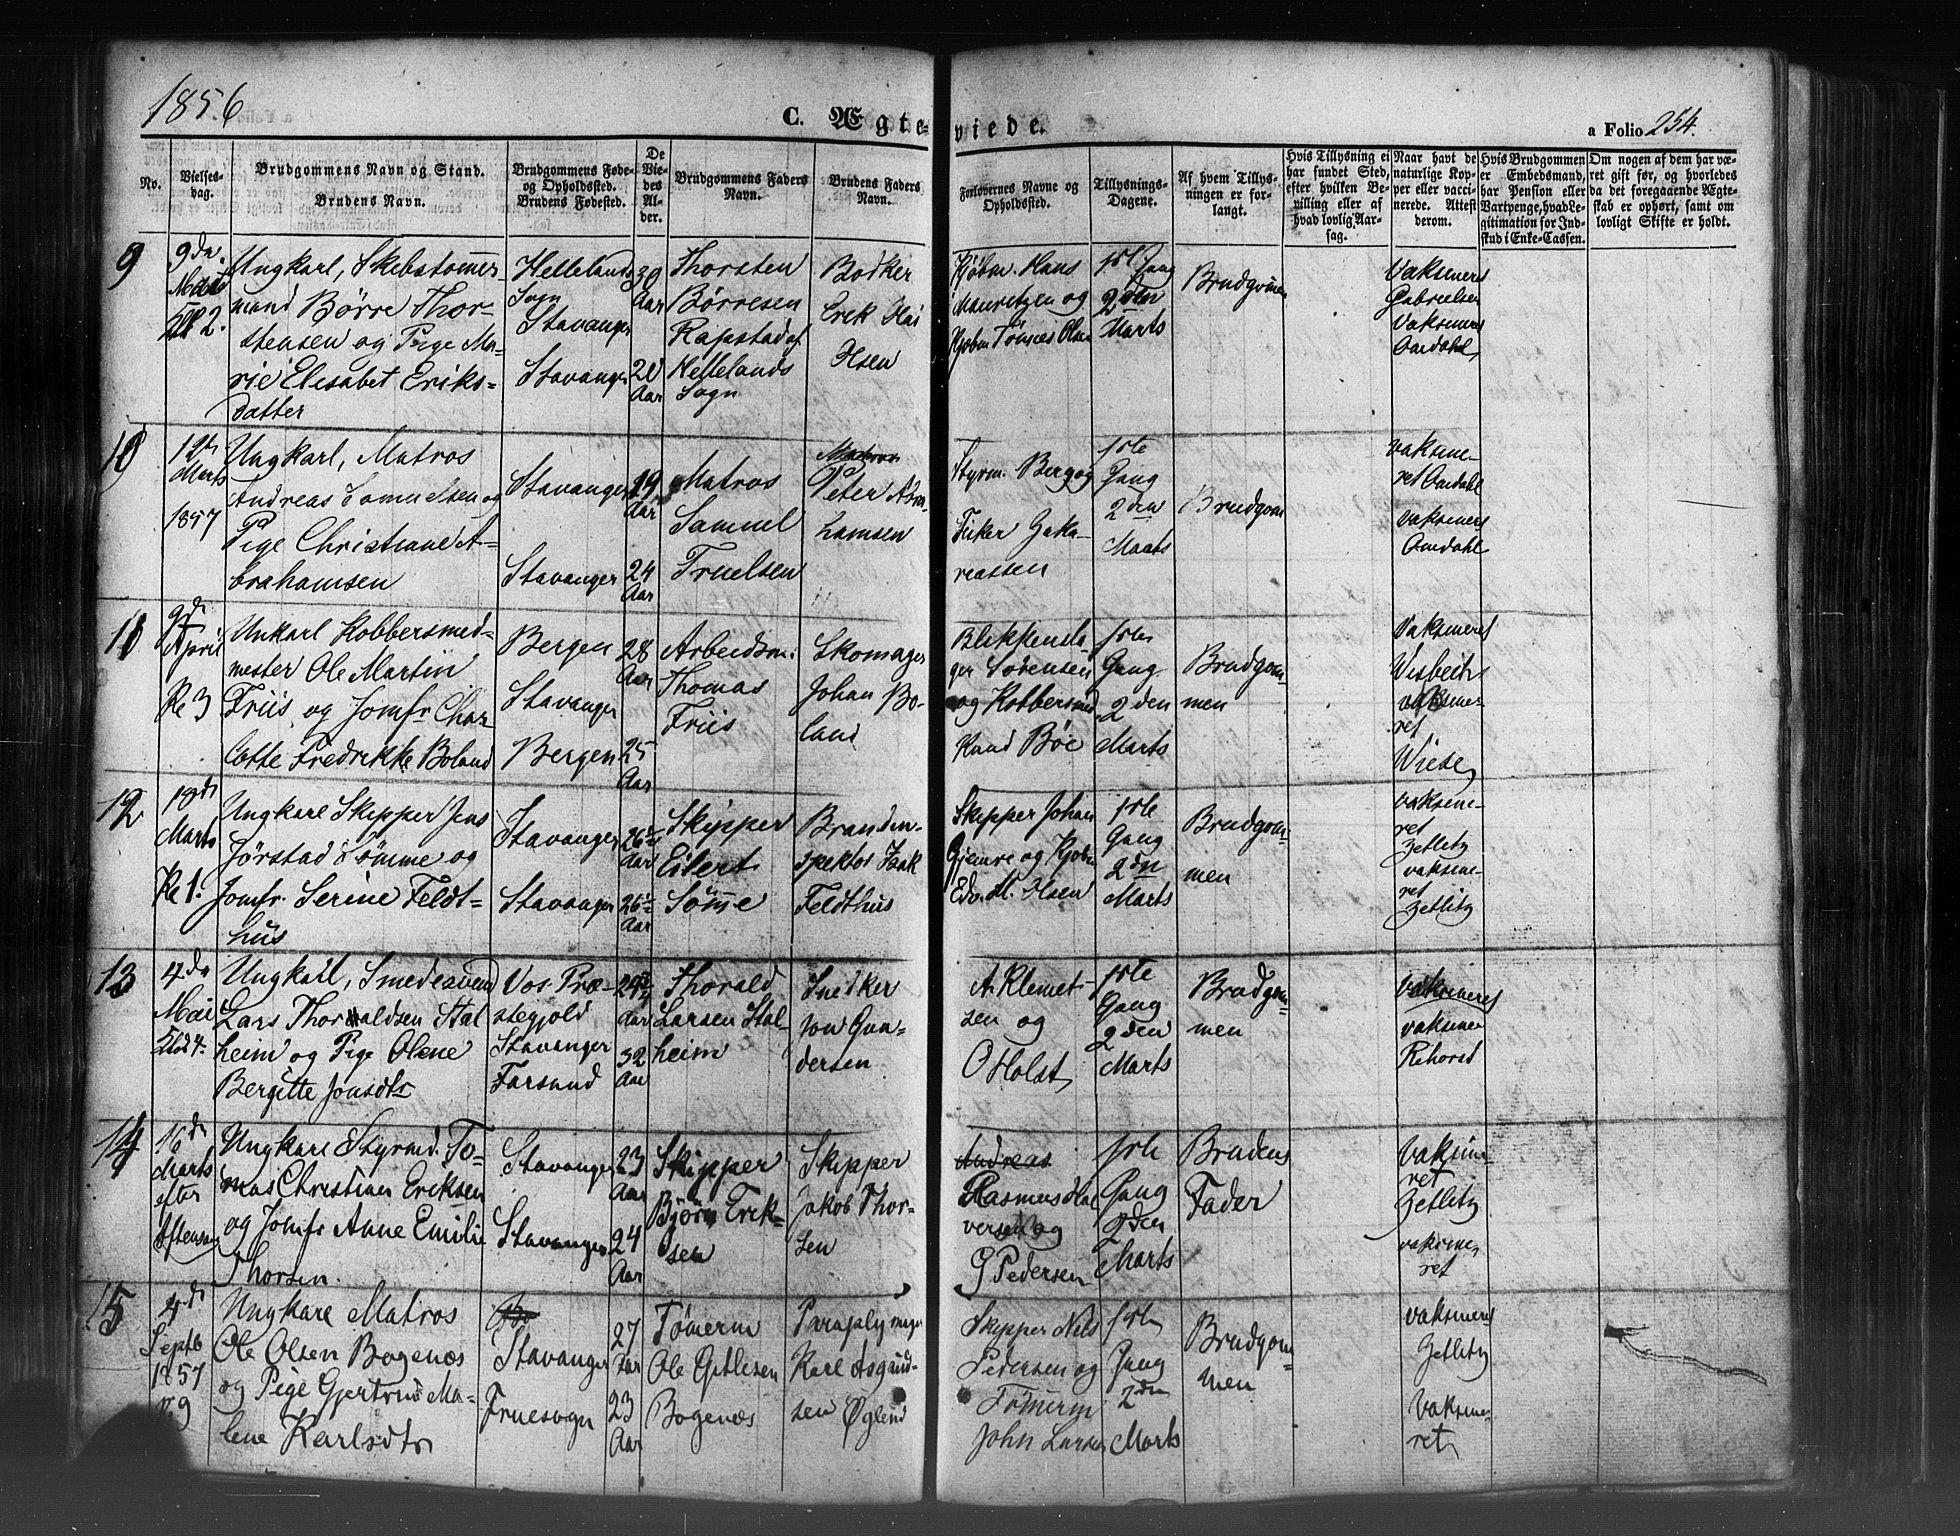 1856
C. Ægte-
viede.
a Folio 254.
No.
Vielses-
dag.
Brudgommens Navn og Stand.
Brudens Navn.
Brudgommens Føde-
og Opholdssted.
Brudens Fødested.
De
Vie-
des
Al-
der.
Brudgommens Faders
Navn.
Brudens Faders
Navn.
Forlovernes Navne og
Opholdssted.
Tillysnings-
Dagene.
Af hvem Tillys-
ningen er for-
langt.
Hvis Tillysning ei
har fundet Sted,
efter hvilken Be-
villing eller af
hvad lovlig Aar-
sag.
Naar havt de
naturlige Kop-
per eller vacci-
nerede. Attest
derom.
Hvis Brudgommen
er Embedsmand,
har Pension eller
Vartpenge, hvad Le-
gitimation for Ind-
skud i Enke-Cassen.
Om nogen af dem har væ-
ret gift før, og hvorledes
da det foregaaende Ægte-
skab er ophørt, samt om
lovligt Skifte er holdt.
9
9de
Marts
Kl 2.
Ungkarl, Skibstømmer-
mand Børre Thor-
stensen og Pige Ma-
rie Elisabet Eriks-
datter
Hellelands
Sogn
Stavanger
Stavanger
30
Aar
20
Aar
Thorsten
Børresen
Rapstad af
Hellelands
Sogn
Bødker
Erik
Olsen
Kjøbm. Hans
Mauritzen og
Kjøbm Tønnes Olsen
1ste Gang
2den
Marts
Brudgommen
Vaksineret
Gabrielsen
Vaksineret
Aardahl
10
12te
Marts
1857
Ungkarl, Matros
Andreas Samuelsen og
Pige Christiane A-
brahamsen
Stavanger
Stavanger
19
Aar
24
Aar
Matros
Samuel
Truelsen
Matros
Peter Abra-
hamsen
Styrm. Berg og
Fisker Zaka-
riassen
1ste
Gang
2den
Marts
Brudgom
vaksine-
ret Aardahl
vaksineret
Aardahl
11
9de
April
Kl 3
Unkarl Kobbersmed-
mester Ole Martin
Friis og Jomfr Char-
lotte Fredrikke Boland
Bergen
Stavanger
Bergen
28
Aar
25
Aar
Arbeidsm.
Thomas
Friis
Skomager
Johan Bo-
land
Blikkensla-
ger Sørensen
og Kobbersmed
Knud Bøe
1ste
Gang
2den
Marts
Brudgom-
men
Vaksineret
Wisbech
vaksine-
ret
Wiese
12
18de
Marts
Kl 1.
Ungkarl Skipper Jens
Jørstad Sømme og
Jomfr. Serine Feldt-
hus
Stavanger
Stavanger
26
Aar
26
Aar
Skipper
Eilert
Sømme
Brandin-
spektør Isak
Feldthus
Skipper Johan
Gjemre og Kjøbm
Edv. M. Olsen
1ste
Gang
2den
Marts
Brudgom-
men
vaksine-
ret
Zetlitz
vaksine-
ret
Zetlitz
13
4de
Mai
Klok 4.
Ungkarl, Smedesvend
Lars Thorvaldsen Stal
heim og Pige Olene
Bergitte Jonsdtr
Vos Præ-
stegjeld
Stavanger
Farsund
24
Aar
32
Aar
Thorald
Larsen Stal-
heim
Snedker
Jon Gun-
dersen
A. Klemet-
sen og
O Holst
1ste
Gang
2den
Marts
Brudgom
men
vaksineret
vaksine
Rihorst
14
16de
Marts
efter
Aftensang
Ungkarl Styrmd. To-
mas Christian Eriksen
og Jomfr Anne Emilie
Thorsen.
Stavanger
Stavanger
23
Aar
24
Aar
Skipper
Bjørn Erik-
sen
Skipper
Jakob Thor-
sen
Andreas
Rasmus Hal
versen og
G Pedersen
1ste
Gang
2den
Marts
Brudens
Fader
Vaksine-
ret
Zetlitz
vaksine
ret
15
4de
Septb
1857
Kl 9
Ungkarl Matros
Ole Olsen Bogenæs
og Pige Gjertrud Ma-
lene Karlsdtr
Stavanger
Fruesogn
27
Aar
23
Aar
Tømerm
Ole Gitlesen
Bogenæs
Paraplymager
Karl Asgaud-
sen Øglend
Skipper Nils
Pedersen og
Tømerm
John Larsen
1ste
Gang
2den
Marts
Brudgom-
men
Vaksineret
Zetlitz
Vaksine-
ret